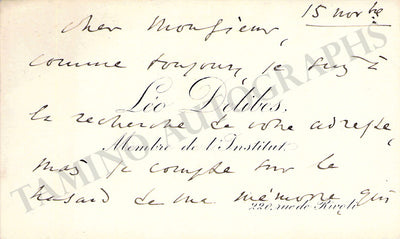 15 novbre
cher Monsieur,
comme toujours, je suis à
Léo Delibes.
la recherche de votre adresse,
Membre de l'Institut
mais je compte sur le
hasard de ma mémoire qui
220, rue de Rivoli
TAMINO AUTOGRAPHS